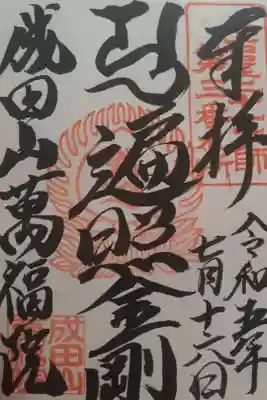 奉拝
令和五年
七月十六日
遍照金剛
成田山萬福院
成田山